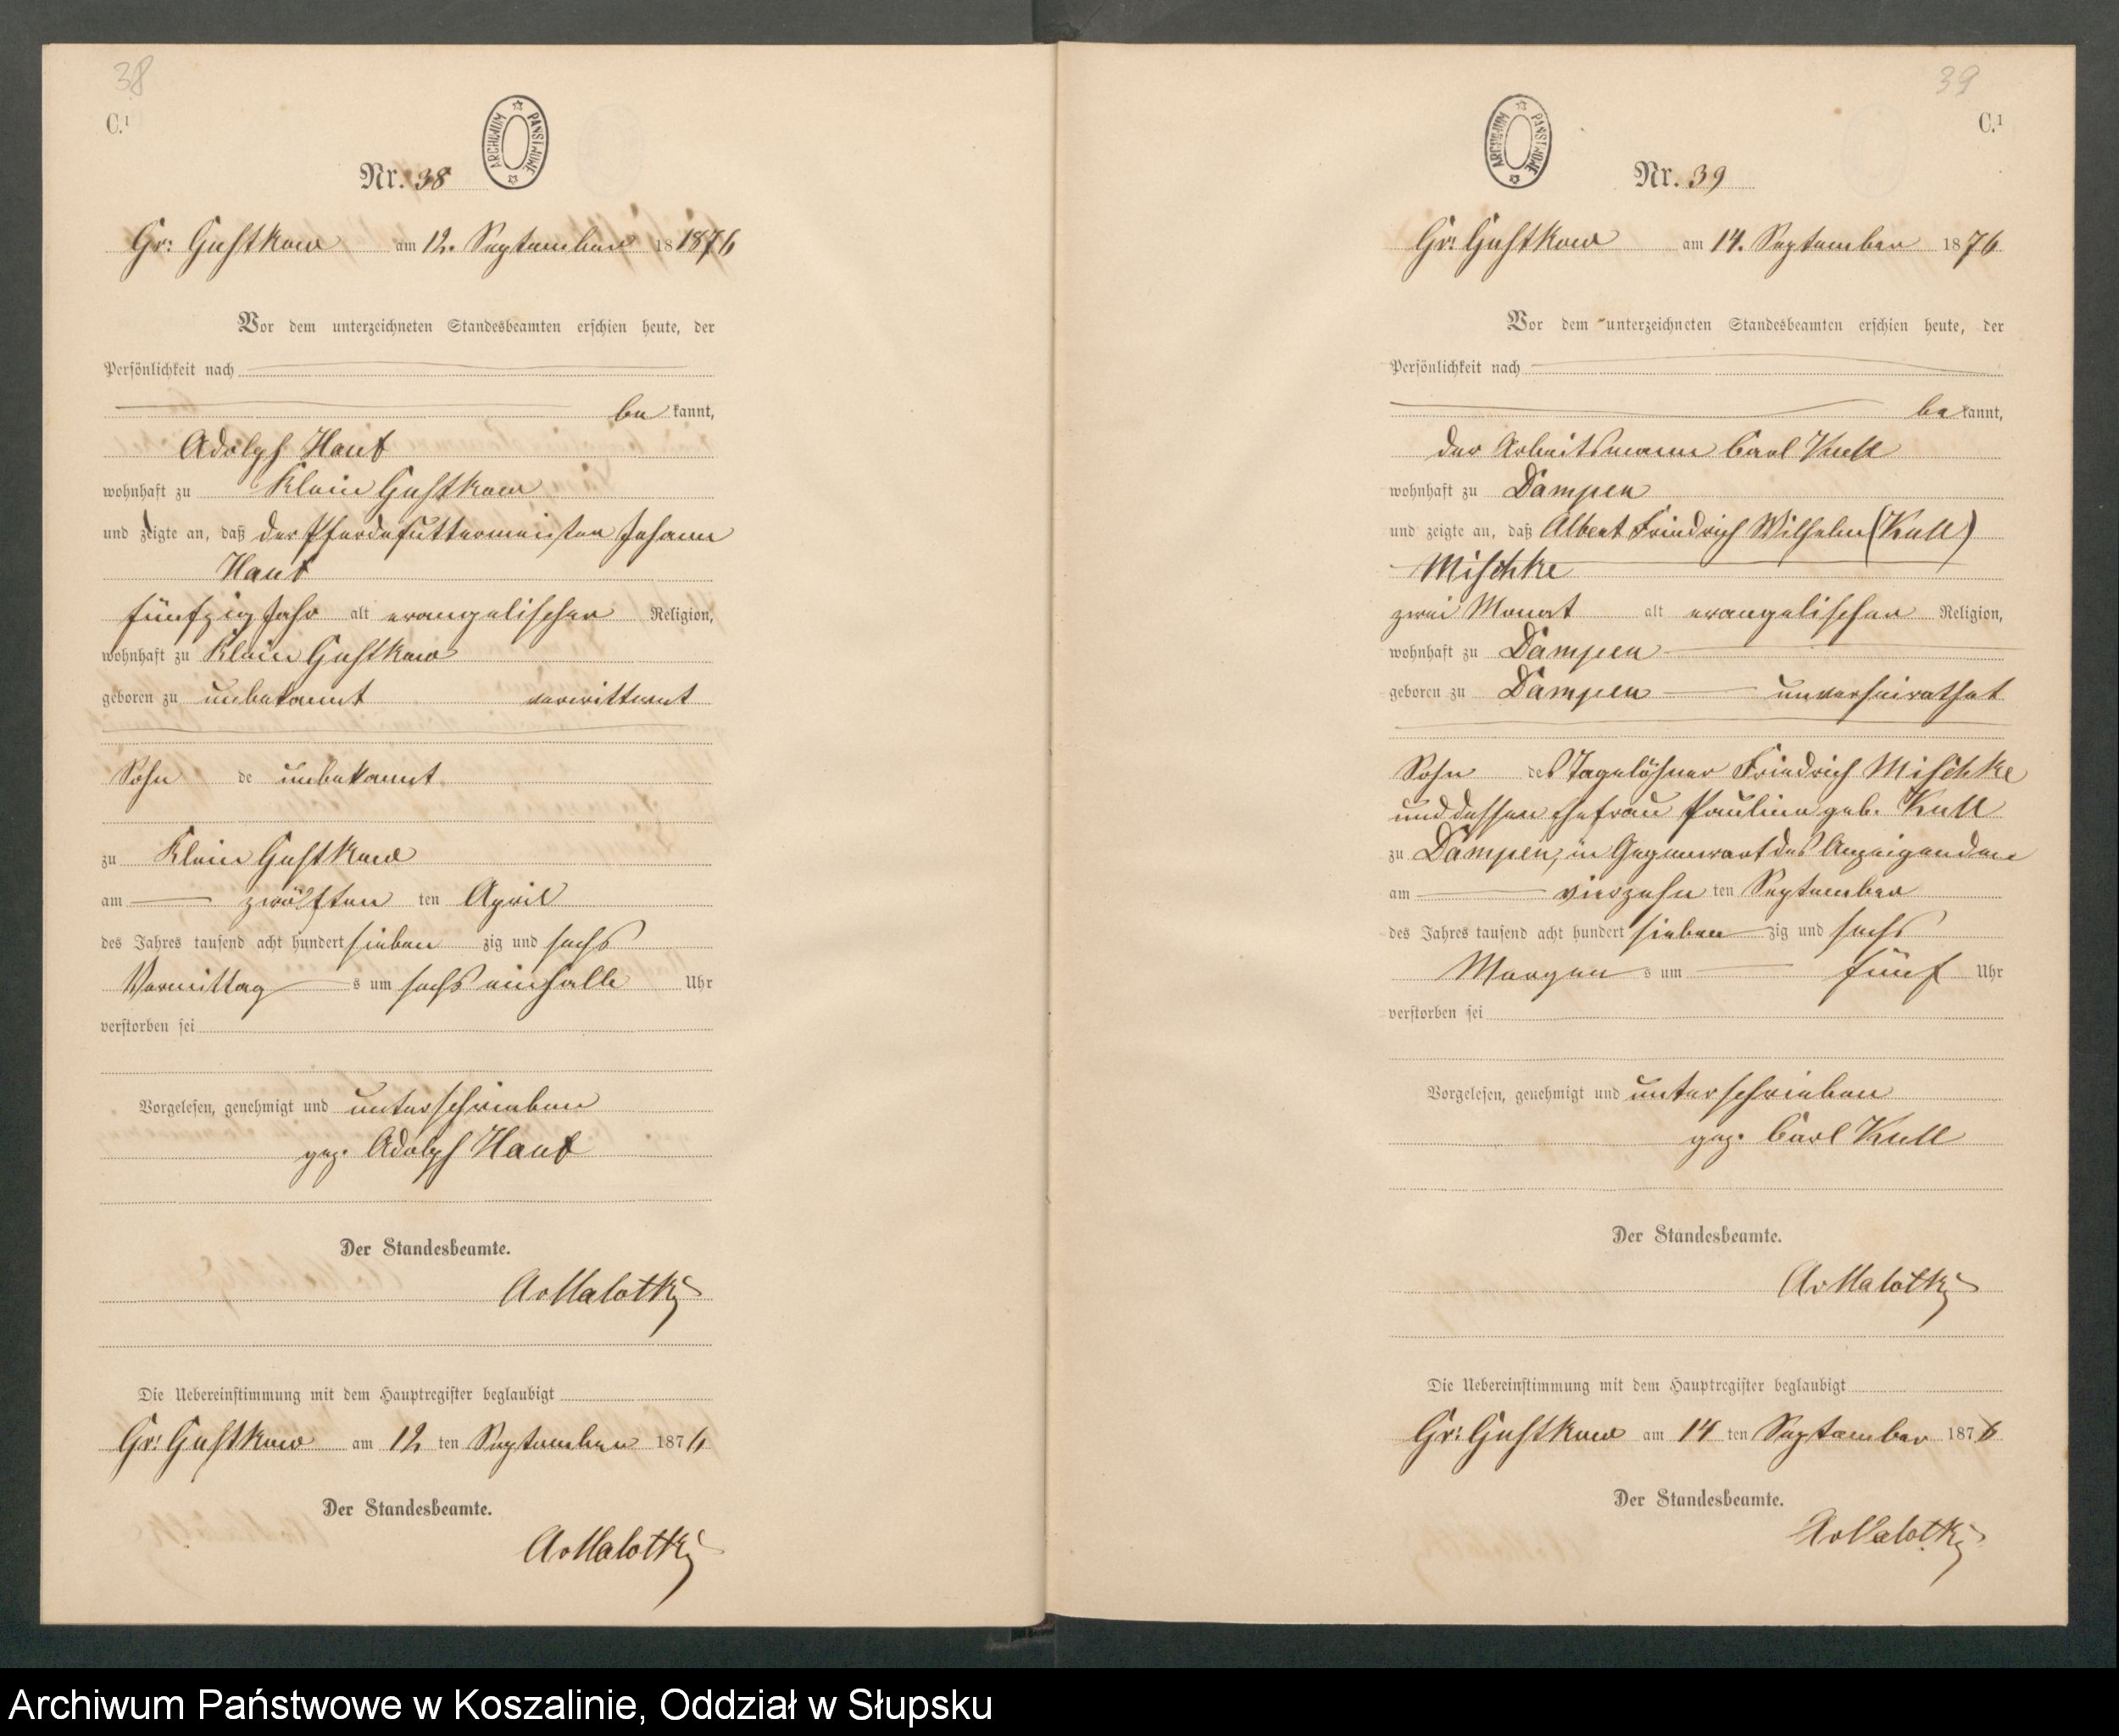 38
C.¹
ARCHIWUM PAŃSTWOWE
Nr. 38
Gr: Gustkow am 12. September 18 1876
Vor dem unterzeichneten Standesbeamten erschien heute, der
Persönlichkeit nach
be kannt,
Adolph Haut
wohnhaft zu Klein Gustkow
und zeigte an, daß der Pferdefuttermeister Johann
Haut
fünfzig Jahr alt evangelischer Religion,
wohnhaft zu Klein Gustkow
geboren zu unbekannt verwittwet
Sohn de unbekannt
zu Klein Gustkow
am zwölften ten April
des Jahres tausend acht hundert sieben zig und sechs
Vormittag s um sechs einhalb Uhr
verstorben sei
Vorgelesen, genehmigt und unterschrieben
gez. Adolph Haut
Der Standesbeamte.
AvMalottky
Die Uebereinstimmung mit dem Hauptregister beglaubigt
Gr: Gustkow am 12 ten September 1876
Der Standesbeamte.
AvMalottky
39
C.¹
ARCHIWUM PAŃSTWOWE
Nr. 39
Gr: Gustkow am 14. September 1876
Vor dem unterzeichneten Standesbeamten erschien heute, der
Persönlichkeit nach
be kannt,
der Arbeitsmann Carl Kull
wohnhaft zu Dampen
und zeigte an, daß Albert Friedrich Wilhelm (Kull)
Mischke
zwei Monat alt evangelischer Religion,
wohnhaft zu Dampen
geboren zu Dampen unverheirathet
Sohn des Tagelöhner Friedrich Mischke
und dessen Ehefrau Pauline geb. Kull
zu Dampen, in Gegenwart des Anzeigenden
am vierzehn ten September
des Jahres tausend acht hundert sieben zig und sechs
Morgen s um fünf Uhr
verstorben sei
Vorgelesen, genehmigt und unterschrieben
gez. Carl Kull
Der Standesbeamte.
AvMalottky
Die Uebereinstimmung mit dem Hauptregister beglaubigt
Gr: Gustkow am 14 ten September 1876
Der Standesbeamte.
AvMalottky
Archiwum Państwowe w Koszalinie, Oddział w Słupsku